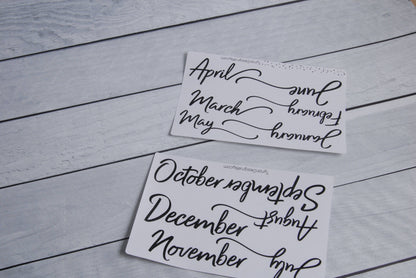 April
June
March
February
May
January
October
September
December
August
November
July